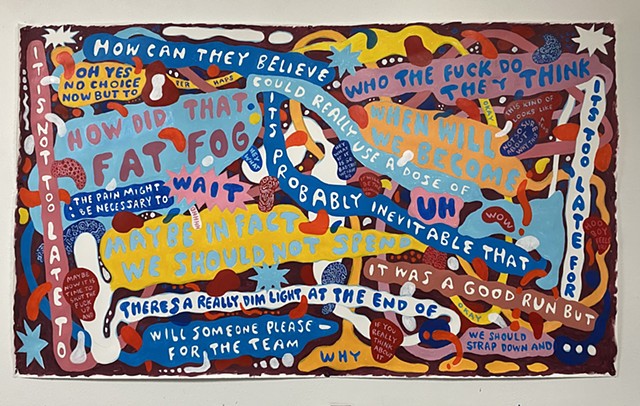 IT'S NOT TOO LATE TO
HOW CAN THEY BELIEVE
OH YES
NO CHOICE
NOW BUT TO
WHO THE FUCK DO
THEY THINK
COULD REALLY USE A DOSE OF
HOW DID THAT
FAT FOG
IT'S PROBABLY INEVITABLE THAT
WHEN WILL
WE BECOME
OKAY
THIS KIND OF
LOOKS LIKE
ITS TOO LATE FOR
THE PAIN MIGHT
BE NECESSARY TO
WAIT
UH
WOW
MAYBE IN FACT
WE SHOULD NOT SPEND
MAYBE
NOW IT IS
TIME TO
SHUT THE
FUCK UP
AND
IT WAS A GOOD RUN BUT
THERES A REALLY DIM LIGHT AT THE END OF
OKAY
WILL SOMEONE PLEASE
FOR THE TEAM
WHY
IF YOU
REALLY
THINK
ABOUT
IT
WE SHOULD
STRAP DOWN AND